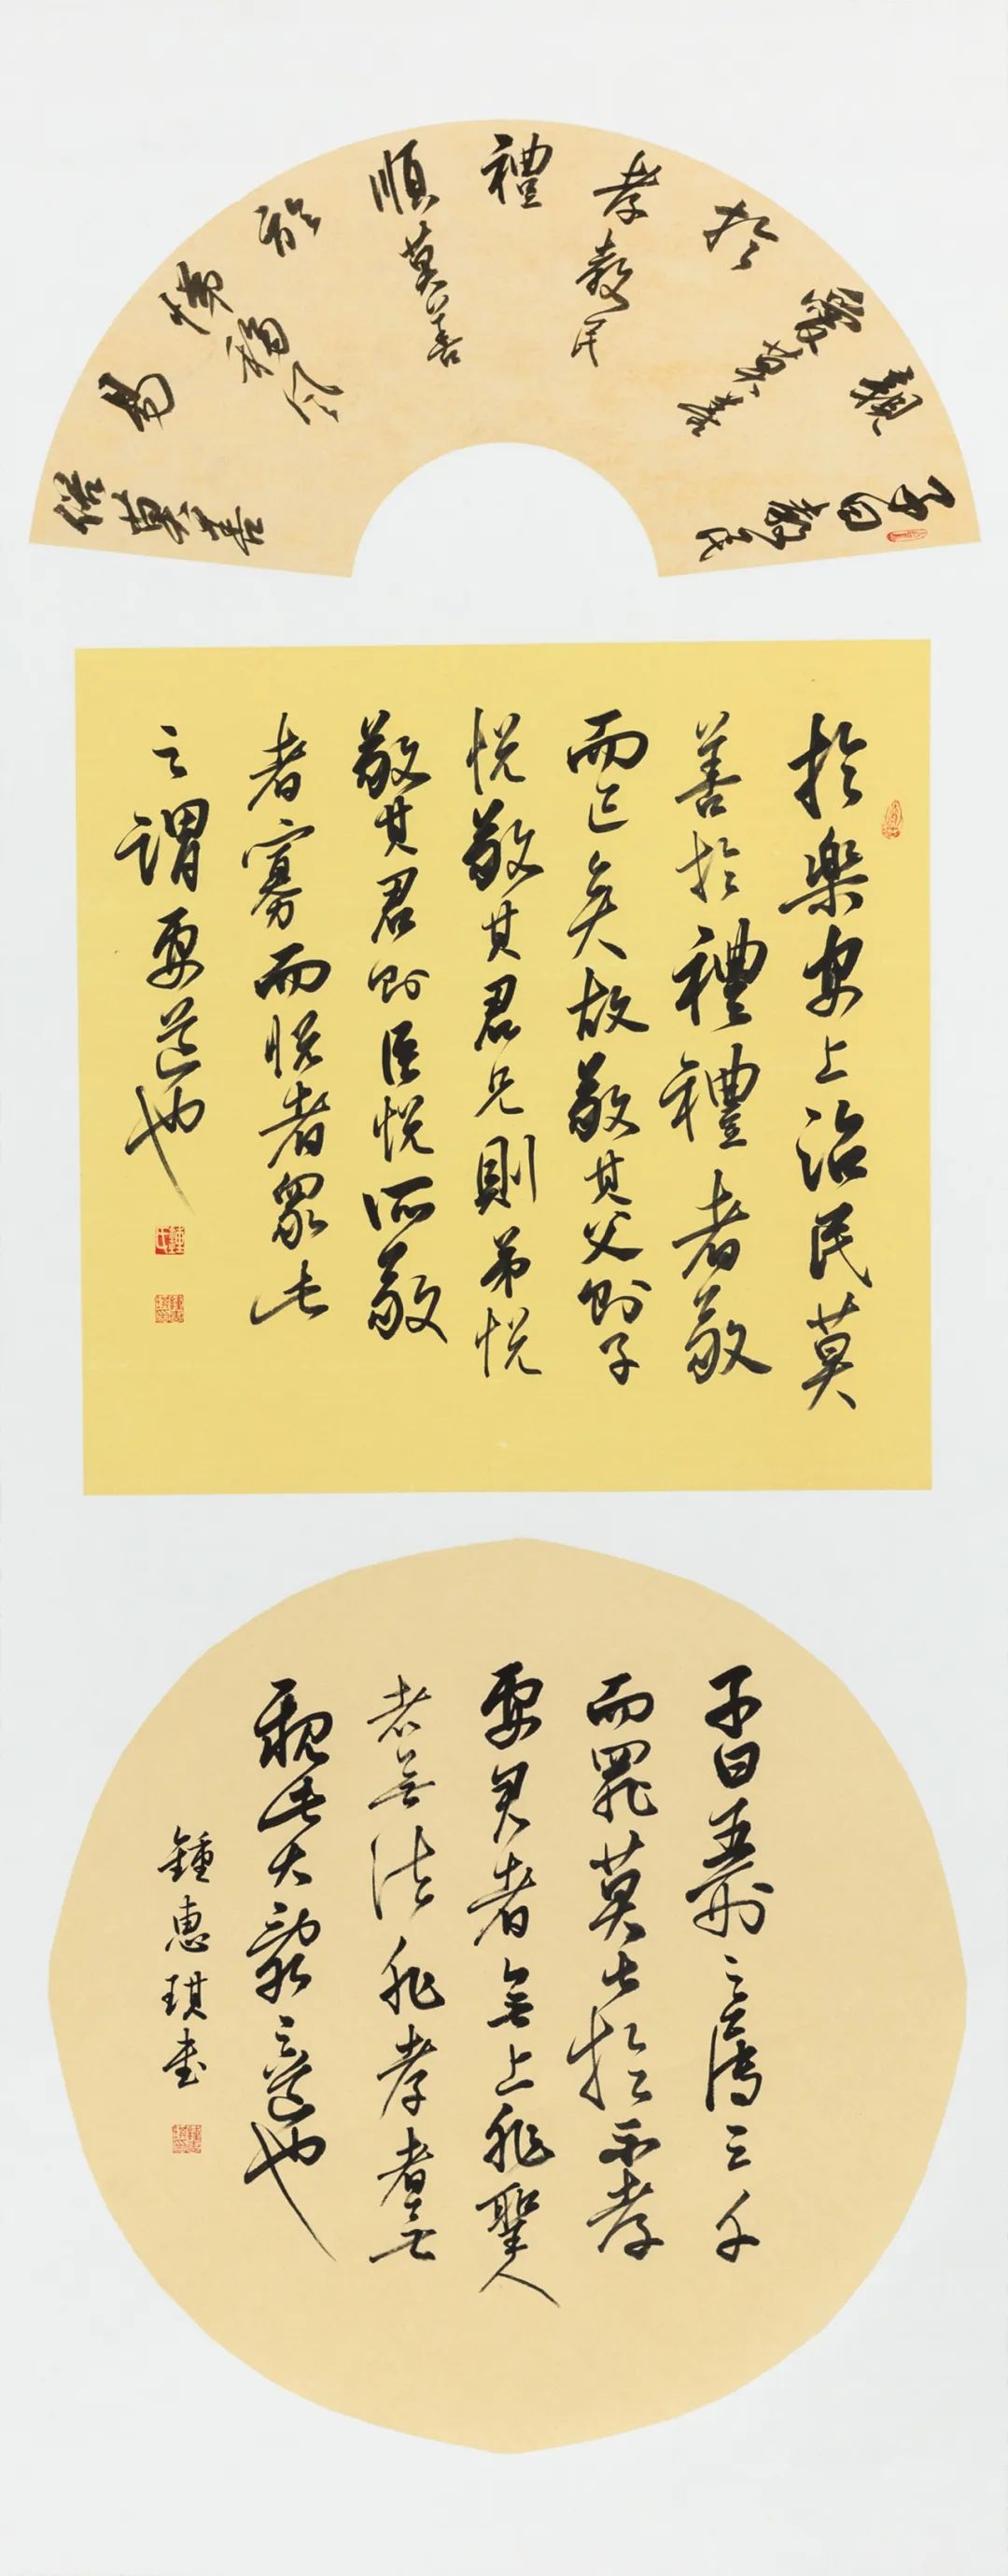 子曰教民
親
愛莫善
於
孝教民
禮
順莫善
於
悌移風
易
俗莫善
於樂安上治民莫
善於禮禮者敬
而已矣故敬其父則子
悅敬其君兄則弟悅
敬其君則臣悅所敬
者寡而悅者眾此
之謂要道也
子曰五刑之屬三千
而罪莫大於不孝
要君者無上非聖人
者無法非孝者無
親此大亂之道也
鍾惠琪書